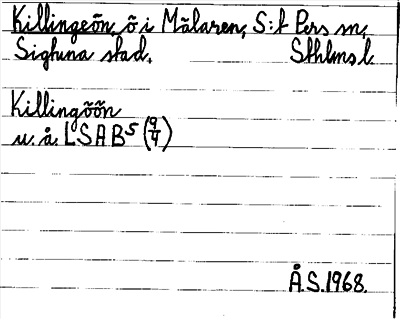 Killingeön, ö i Mälaren, S:t Pers sn,
Sigtuna stad. Sthlms l.
Killingöön
u. å. LSA B5 (9/4)
Å.S. 1968.